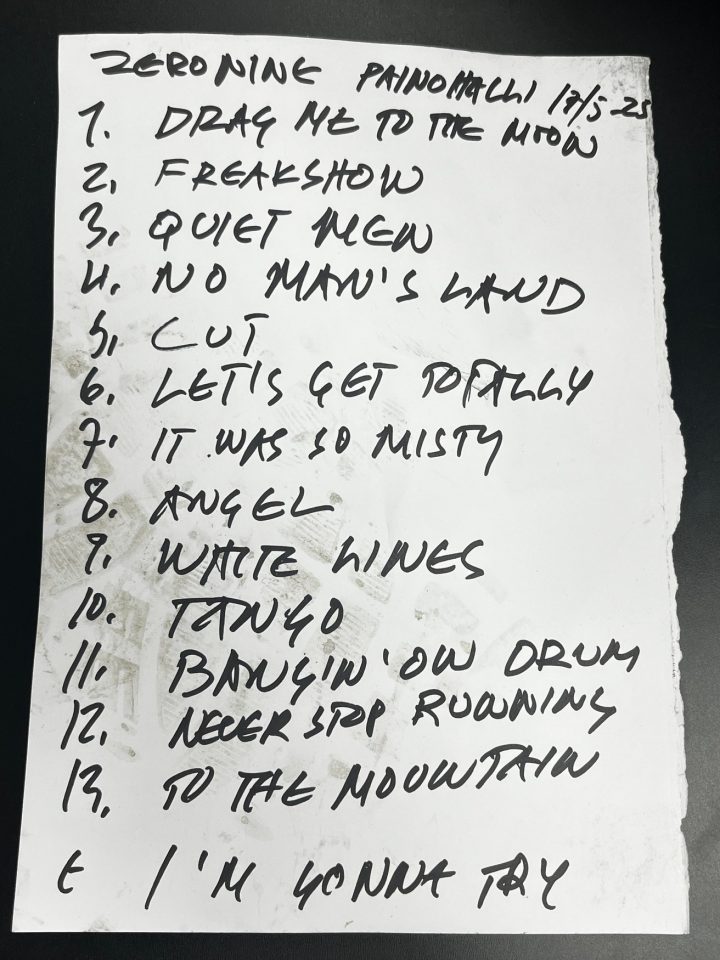 ZERO NINE PAINOHALLI 17/5 -25
1. DRAG ME TO THE MOON
2. FREAKSHOW
3. QUIET MEN
4. NO MAN'S LAND
5. CUT
6. LET'S GET TOTALLY
7. IT WAS SO MISTY
8. ANGEL
9. WHITE LINES
10. TANGO
11. BANGIN' ON DRUM
12. NEVER STOP RUNNING
13. TO THE MOUNTAIN
E I'M GONNA TRY